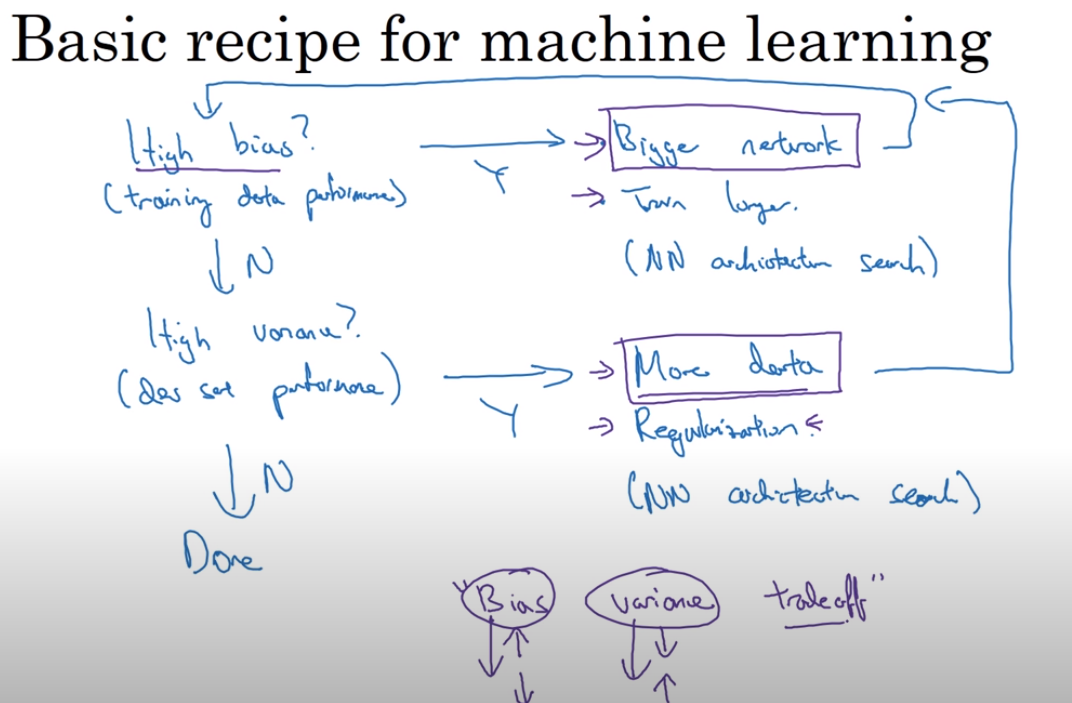 Basic recipe for machine learning
High bias?
(training data performance)
Y
Bigge network
Train longer.
(NN architecture search)
N
High variance?
(dev set performance)
Y
More data
Regularization.
(NN architecture search)
N
Done
"Bias variance tradeoff"